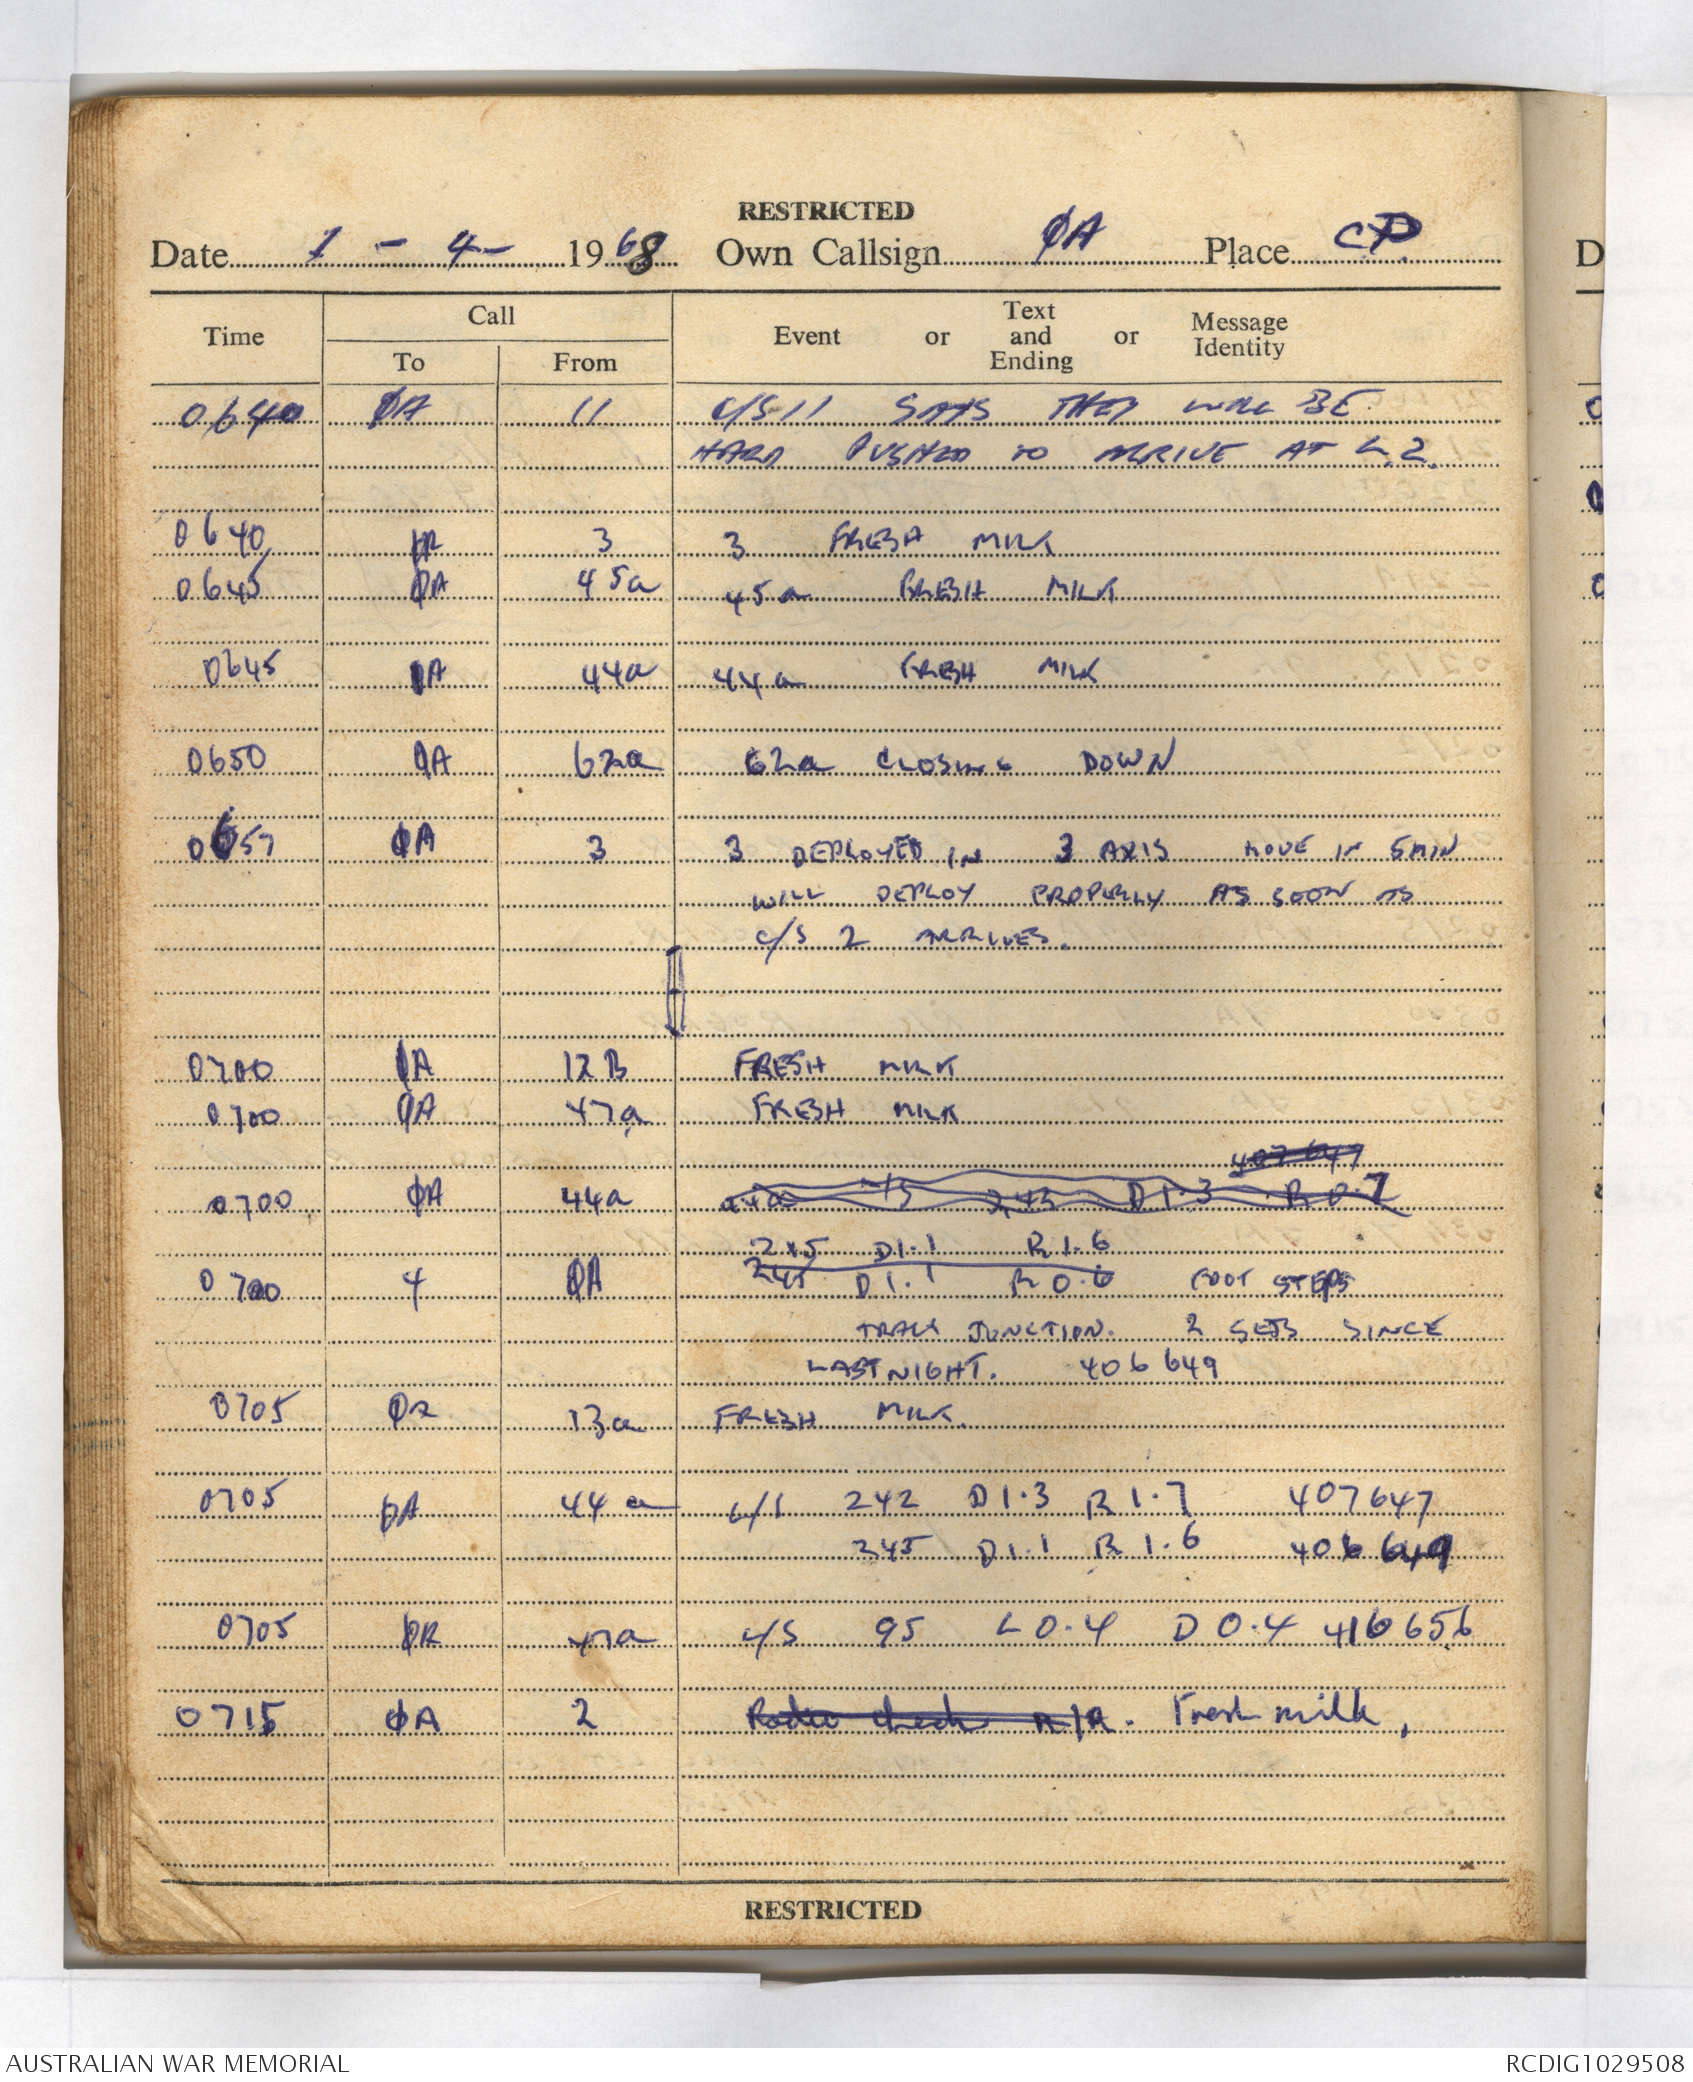 RESTRICTED
Date 1 - 4 - 1968 Own Callsign ØA Place CP
D
Time Call To From Event or Text and Ending or Message Identity
0640 ØA 11 C/S 11 SAYS THEY WILL BE
HARD PUSHED TO ARRIVE AT L.Z.
0640 ØA 3 3 FRESH MILK
0645 ØA 45a 45a FRESH MILK
0645 ØA 44a 44a FRESH MILK
0650 ØA 62a 62a CLOSING DOWN
0657 ØA 3 3 DEPLOYED IN 3 AXIS MOVE IN 5 MIN
WILL DEPLOY PROPERLY AS SOON AS
C/S 2 ARRIVES.
0700 ØA 12B FRESH MILK
0700 ØA 47a FRESH MILK
407 647
0700 ØA 44a 44a 245 D 1.3 R 0.7
245 D 1.1 R 1.6
0700 4 ØA 245 D 1.1 R 0.6 FOOT STEPS
TRACK JUNCTION. 2 SETS SINCE
LAST NIGHT. 406 649
0705 Øa 13a FRESH MILK.
0705 ØA 44a 242 D 1.3 R 1.7 407647
245 D 1.1 R 1.6 406 649
0705 ØA 47a C/S 95 L 0.4 D 0.4 416656
0715 ØA 2 Radio check Fresh milk,
RESTRICTED
AUSTRALIAN WAR MEMORIAL
RCDIG1029508